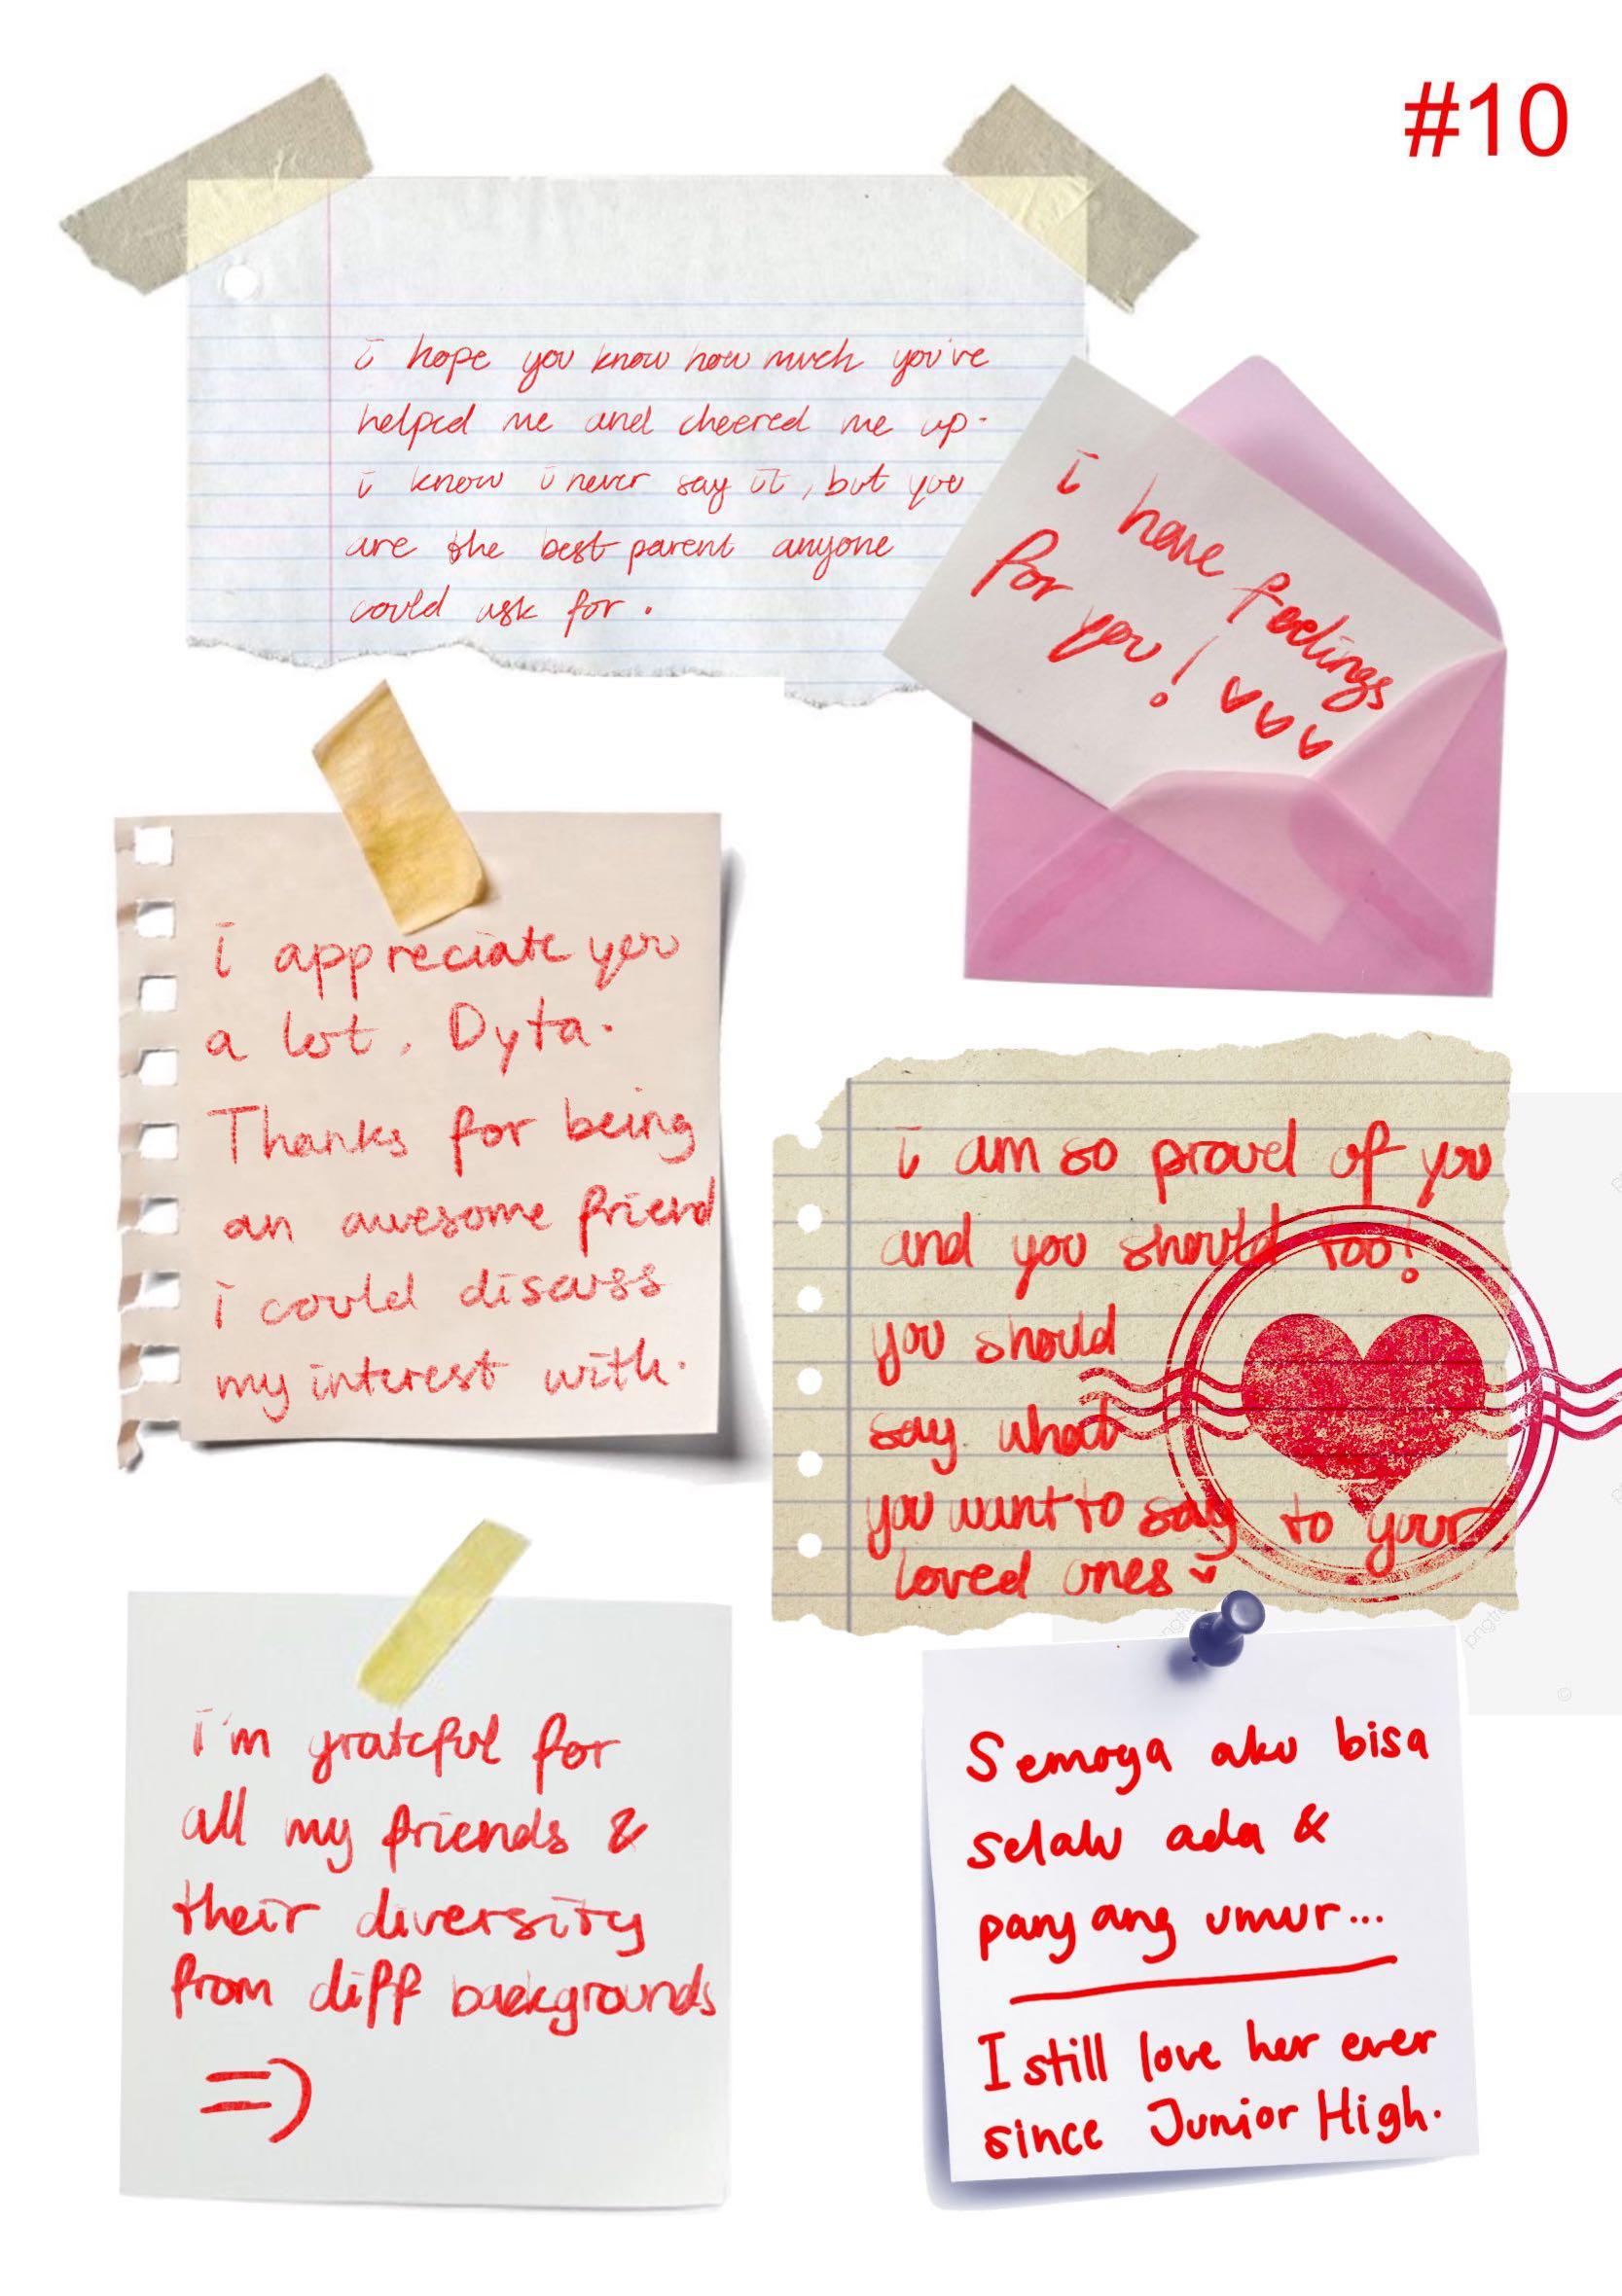 #10
i hope you know how much you've
helped me and cheered me up.
i know i never say it, but you
are the best parent anyone
could ask for.
i have feelings
for you!
i appreciate you
a lot, Dyta.
Thanks for being
an awesome friend
i could discuss
my interest with.
i am so proud of you
and you should too!
you should
say what
you want to say to your
loved ones
i'm grateful for
all my friends &
their diversity
from diff backgrounds
=)
Semoga aku bisa
selalu ada &
panjang umur...
I still love her ever
since Junior High.